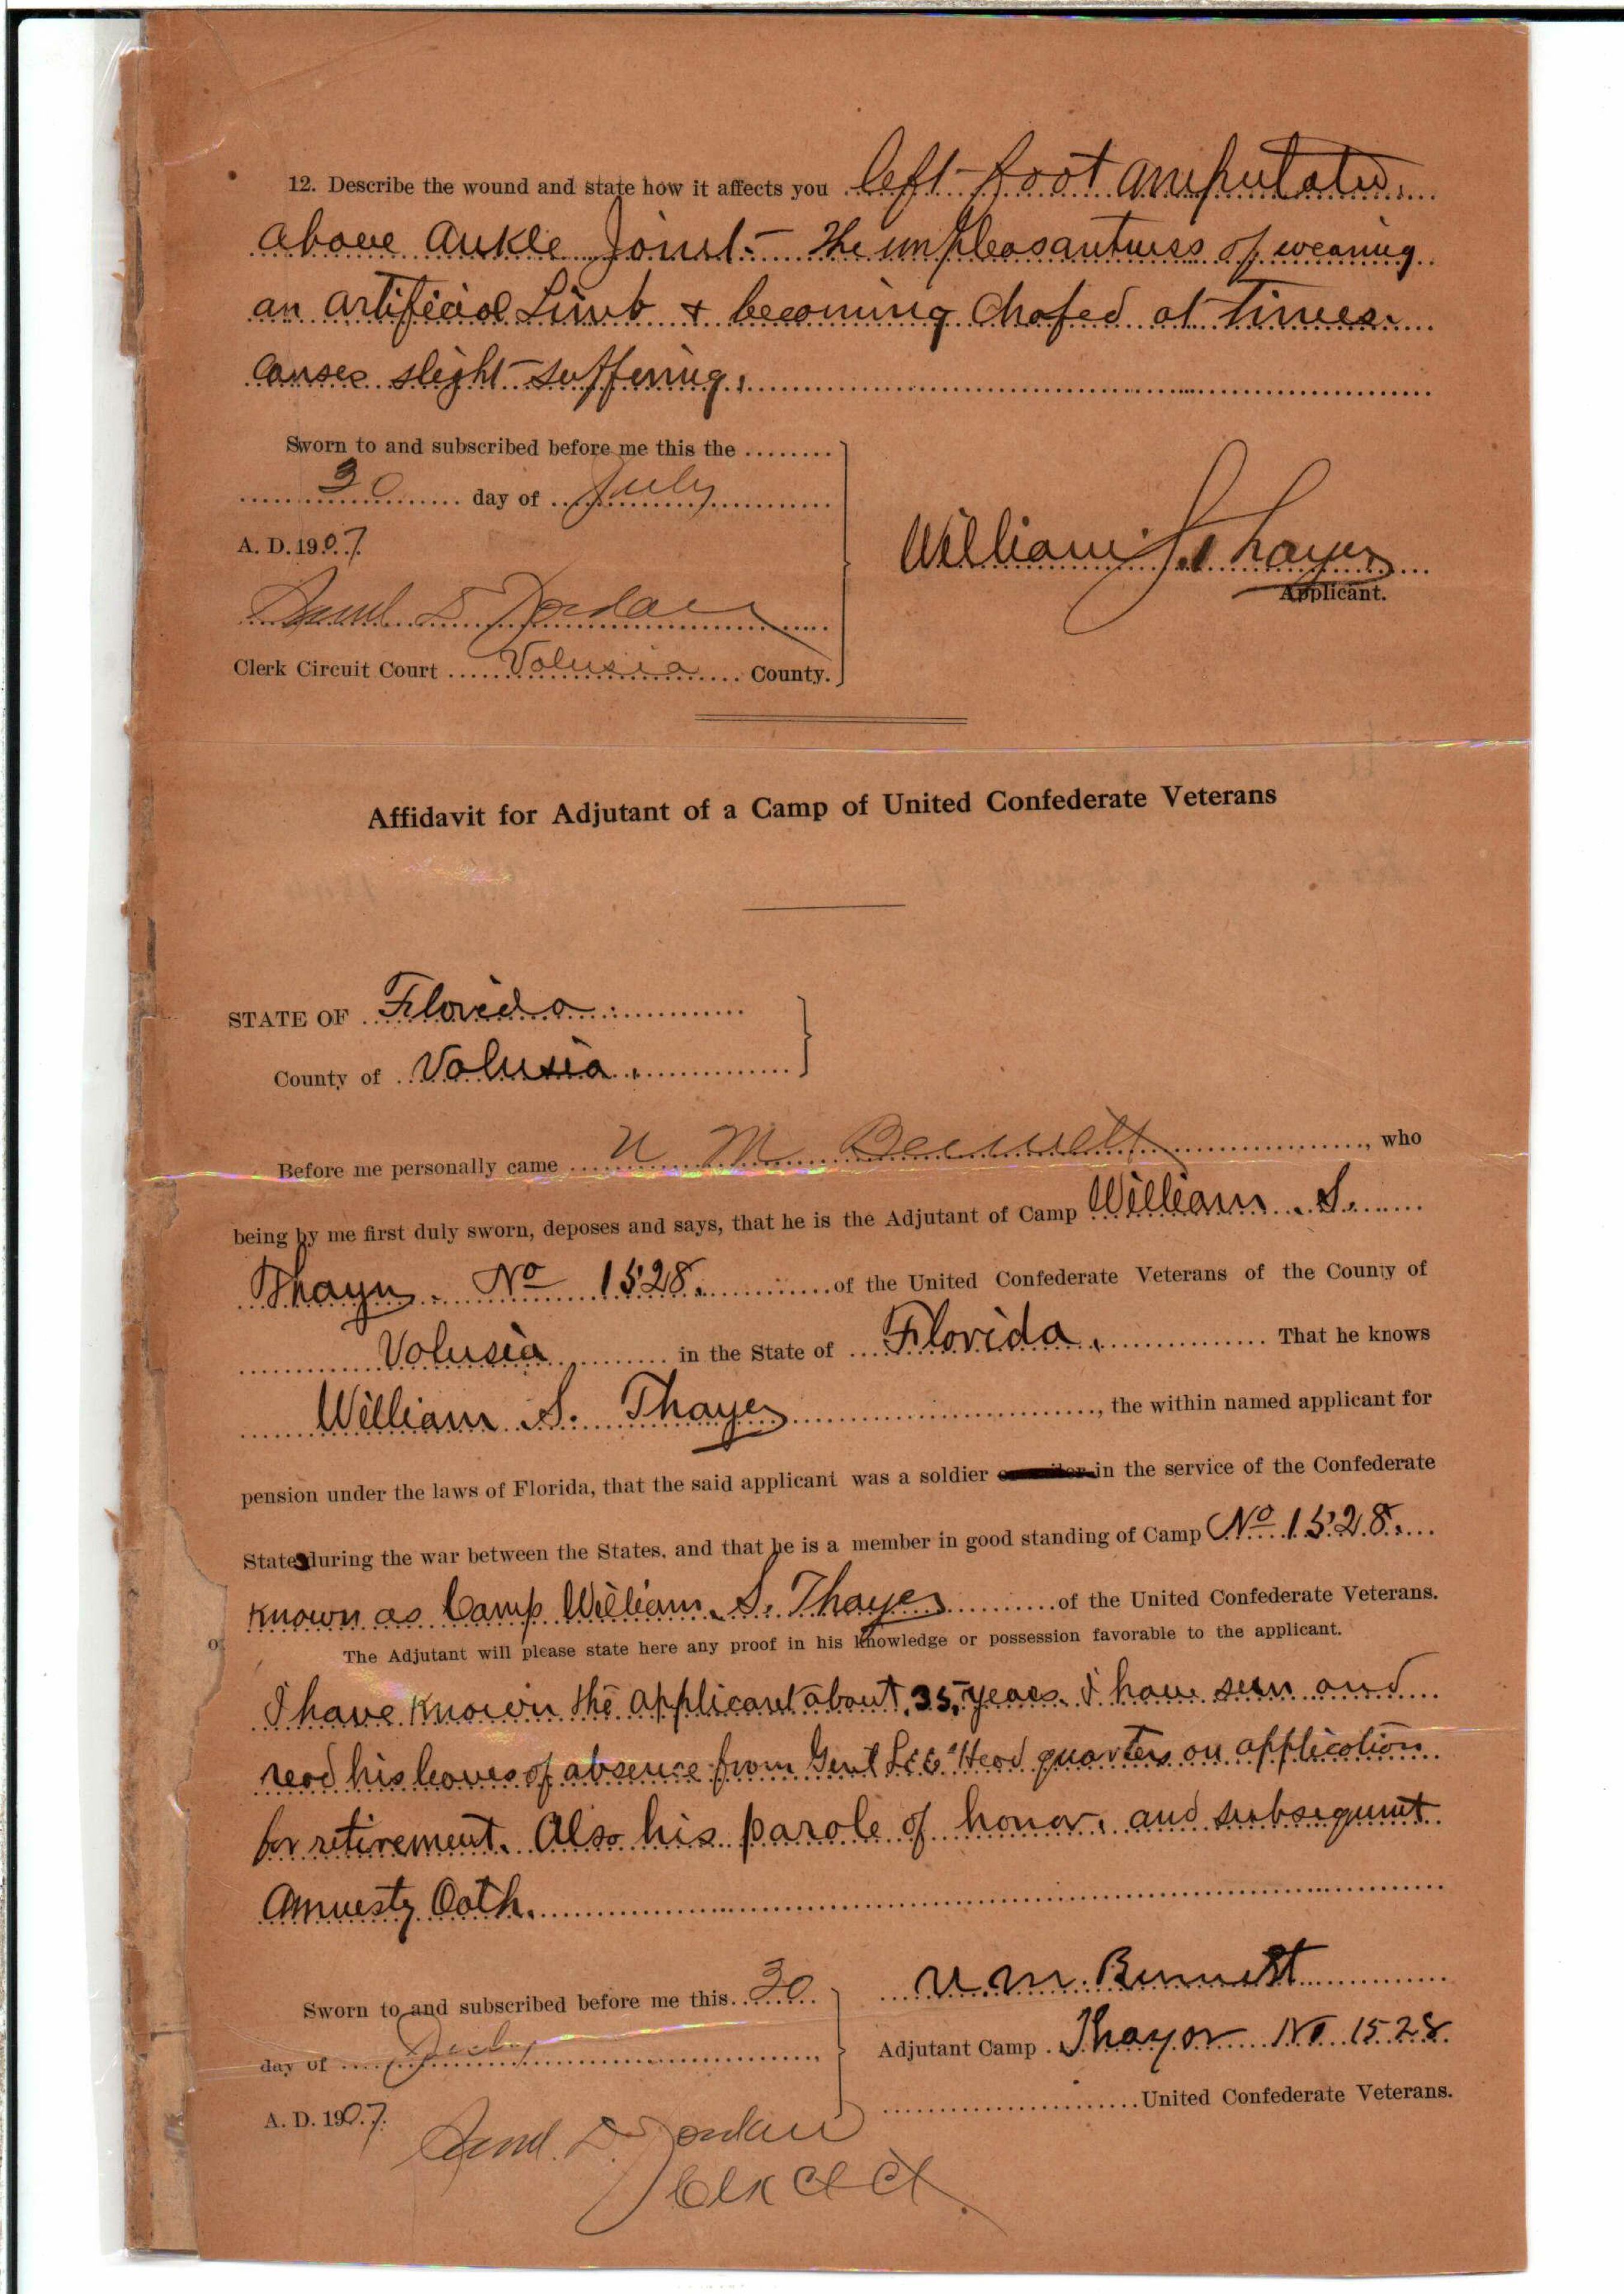 12. Describe the wound and state how it affects you left foot amputated
above ankle Joint - The unpleasantness of wearing
an artificial Limb & becoming chafed at times
causes slight suffering.
Sworn to and subscribed before me this the
30 day of July
A. D. 1907
Saml D. Jordan
Clerk Circuit Court Volusia County.
William S. Thayer
Applicant.
Affidavit for Adjutant of a Camp of United Confederate Veterans
STATE OF Florida
County of Volusia.
Before me personally came M Bennett, who
being by me first duly sworn, deposes and says, that he is the Adjutant of Camp William S.
Thayer. No 1528. of the United Confederate Veterans of the County of
Volusia in the State of Florida. That he knows
William S. Thayer, the within named applicant for
pension under the laws of Florida, that the said applicant was a soldier in the service of the Confederate
States during the war between the States, and that he is a member in good standing of Camp No 1528.
known as Camp William S. Thayer of the United Confederate Veterans.
The Adjutant will please state here any proof in his knowledge or possession favorable to the applicant.
I have known the applicant about 35 years. I have seen and
read his leaves of absence from Genl Lee's Head quarters on application
for retirement. Also his parole of honor, and subsequent
Amnesty Oath.
Sworn to and subscribed before me this 30
day of July
A. D. 1907.
Saml. D. Jordan
Clk
M. Bennett
Adjutant Camp Thayer No 1528.
United Confederate Veterans.